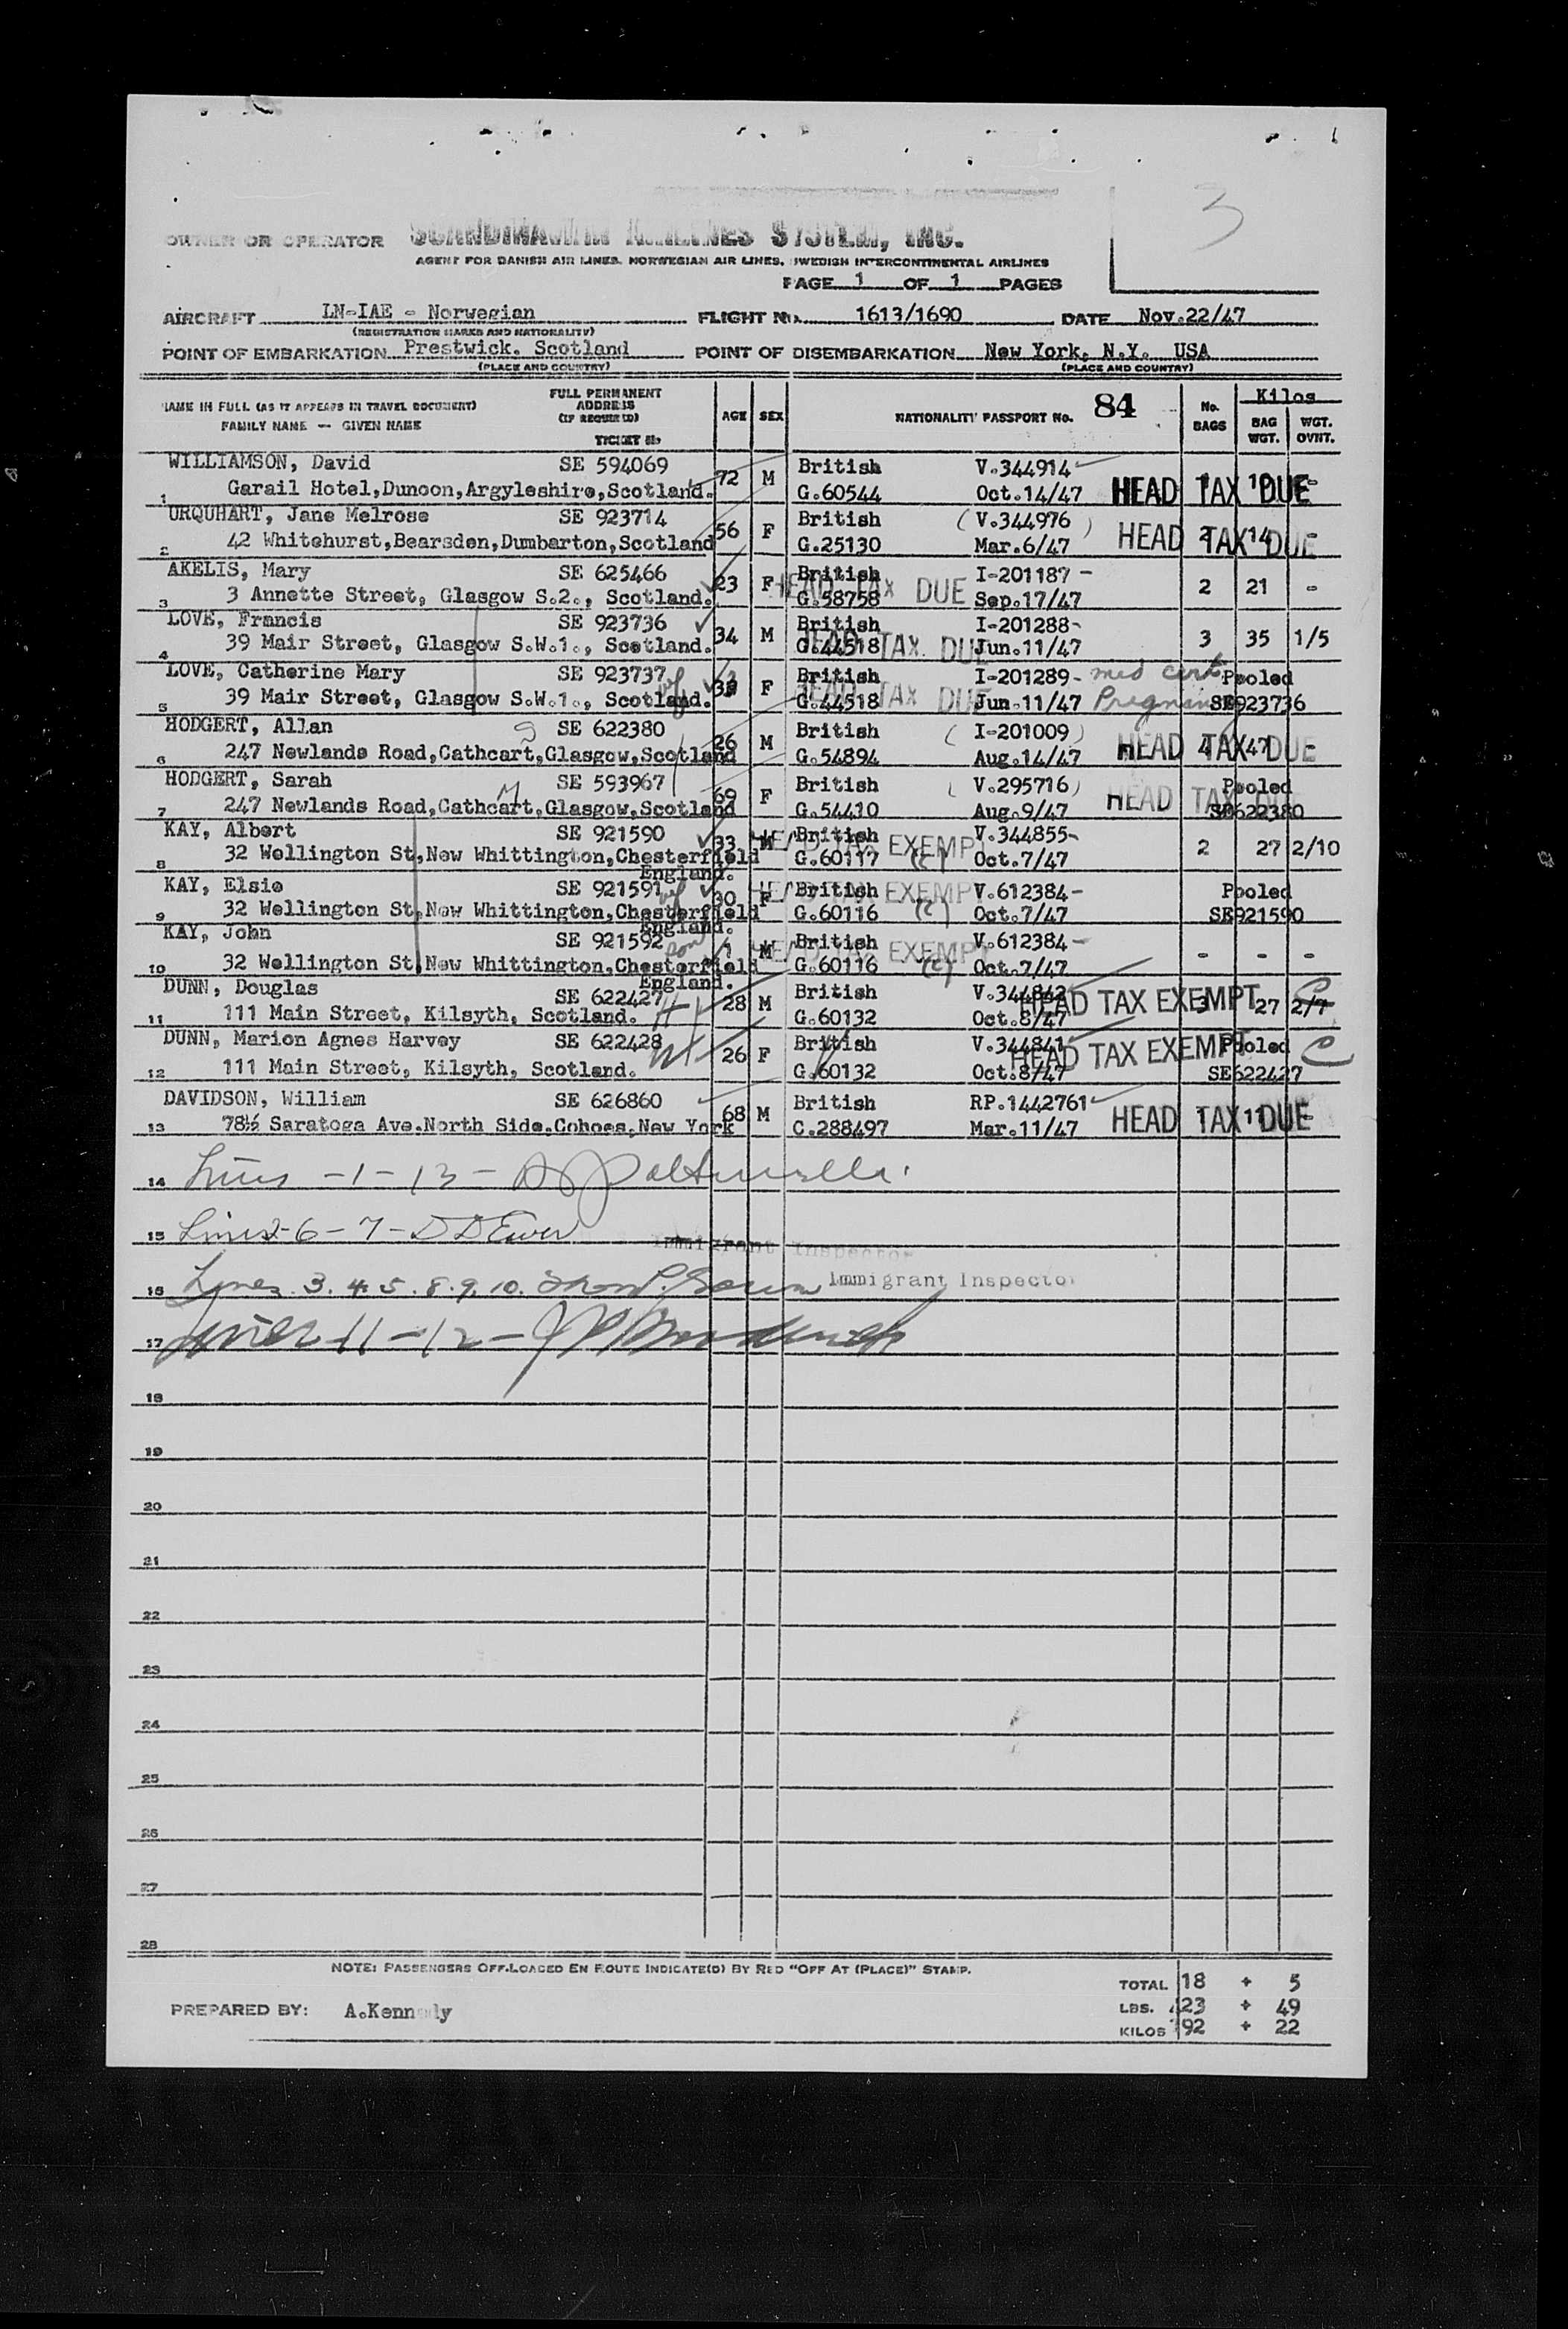 3
OWNER OR OPERATOR SCANDINAVIAN AIRLINES SYSTEM, INC.
AGENT FOR DANISH AIR LINES. NORWEGIAN AIR LINES. SWEDISH INTERCONTINENTAL AIRLINES
PAGE 1 OF 1 PAGES
AIRCRAFT LN-IAE - Norwegian FLIGHT No. 1613/1690 DATE Nov.22/47
(REGISTRATION MARKS AND NATIONALITY)
POINT OF EMBARKATION Prestwick. Scotland POINT OF DISEMBARKATION New York, N.Y. USA
(PLACE AND COUNTRY) (PLACE AND COUNTRY)
NAME IN FULL (AS IT APPEARS IN TRAVEL DOCUMENT) FULL PERMANENT ADDRESS (IF REQUIRED) AGE SEX NATIONALITY PASSPORT No. 84 No. BAGS Kilos
FAMILY NAME — GIVEN NAME TICKET No BAG WGT. WGT. OVHT.
WILLIAMSON, David SE 594069 72 M British V.344914
1 Garail Hotel,Dunoon,Argyleshire,Scotland. G.60544 Oct.14/47 HEAD TAX DUE 1 10 -
URQUHART, Jane Melrose SE 923714 56 F British (V.344976)
2 42 Whitehurst,Bearsden,Dumbarton,Scotland G.25130 Mar.6/47 HEAD TAX DUE 2 14 -
AKELIS, Mary SE 625466 23 F British I-201187 - HEAD TAX DUE
3 3 Annette Street, Glasgow S.2., Scotland. G.58758 Sep.17/47 2 21 -
LOVE, Francis SE 923736 34 M British I-201288-
4 39 Mair Street, Glasgow S.W.1., Scotland. G.44518 Jun.11/47 HEAD TAX DUE 3 35 1/5
LOVE, Catherine Mary SE 923737 wf F British I-201289- med cert Pooled
5 39 Mair Street, Glasgow S.W.1., Scotland. G.44518 Jun.11/47 HEAD TAX DUE Pregnancy SE923736
HODGERT, Allan S SE 622380 26 M British (I-201009)
6 247 Newlands Road,Cathcart,Glasgow,Scotland G.54894 Aug.14/47 HEAD TAX DUE 4 47 -
HODGERT, Sarah M SE 593967 69 F British (V.295716) Pooled
7 247 Newlands Road,Cathcart,Glasgow,Scotland G.54410 Aug.9/47 HEAD TAX DUE SE622380
KAY, Albert SE 921590 33 M British V.344855- HEAD TAX EXEMPT (c)
8 32 Wellington St,New Whittington,Chesterfield G.60117 Oct.7/47 2 27 2/10
England.
KAY, Elsie SE 921591 wf 30 F British V.612384- HEAD TAX EXEMPT (c) Pooled
9 32 Wellington St,New Whittington,Chesterfield G.60116 Oct.7/47 SE921590
England.
KAY, John SE 921592 son M British V.612384- HEAD TAX EXEMPT (c)
10 32 Wellington St,New Whittington,Chesterfield G.60116 Oct.7/47 - - -
England.
DUNN, Douglas SE 622427 H 28 M British V.344842 HEAD TAX EXEMPT C
11 111 Main Street, Kilsyth, Scotland. G.60132 Oct.8/47 3 27 2/7
DUNN, Marion Agnes Harvey SE 622428 W 26 F British V.344841 HEAD TAX EXEMPT Pooled C
12 111 Main Street, Kilsyth, Scotland. G.60132 Oct.8/47 SE622427
DAVIDSON, William SE 626860 68 M British RP.1442761
13 78½ Saratoga Ave.North Side.Cohoes,New York C.288497 Mar.11/47 HEAD TAX DUE 1 11 -
14 Lines -1-13-
15 Lines 2-6-7- D D Ewer Immigrant Inspector
16 Lines 3.4.5.8.9.10. Immigrant Inspector
17 Lines 11-12-
18
19
20
21
22
23
24
25
26
27
28
NOTE: PASSENGERS OFF-LOADED EN ROUTE INDICATE(D) BY RED "OFF AT (PLACE)" STAMP.
TOTAL 18 + 5
PREPARED BY: A.Kennedy LBS. 423 + 49
KILOS 192 + 22